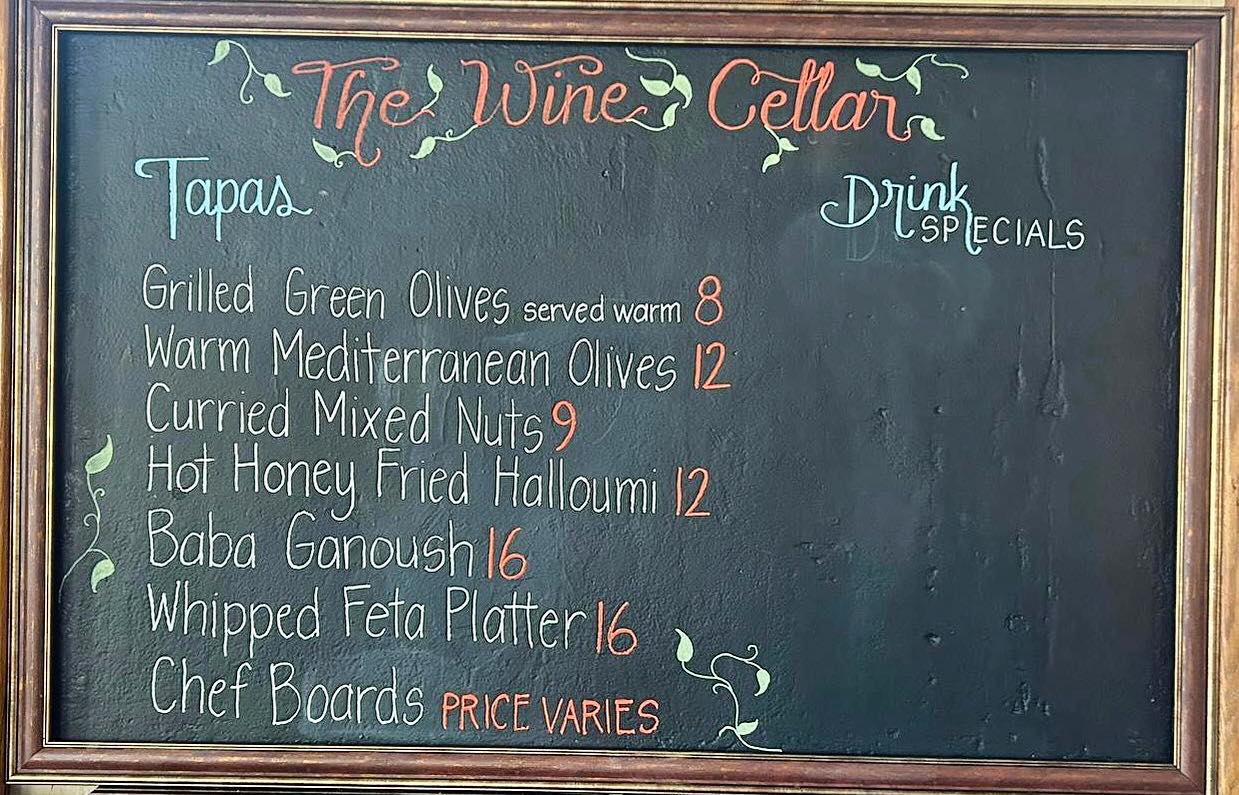 The Wine Cellar
Tapas
Grilled Green Olives served warm 8
Warm Mediterranean Olives 12
Curried Mixed Nuts 9
Hot Honey Fried Halloumi 12
Baba Ganoush 16
Whipped Feta Platter 16
Chef Boards PRICE VARIES
Drink
SPECIALS